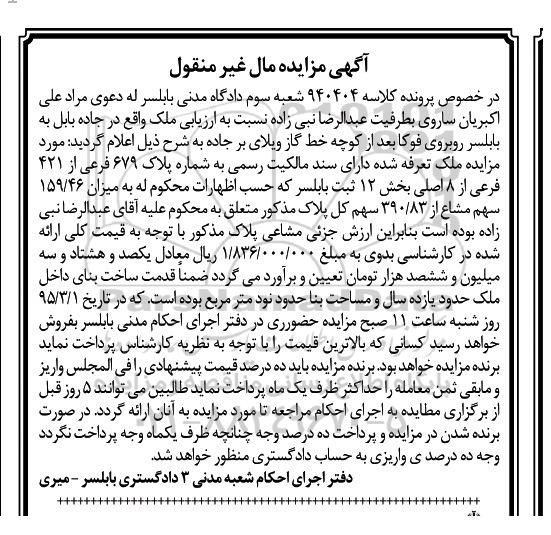 آگهی مزایده مال غیر منقول
در خصوص پرونده کلاسه ۹۴۰۴۰۴ شعبه سوم دادگاه مدنی بابلسر له دعوی مراد علی
اکبریان ساروی بطرفیت عبدالرضا نبی زاده نسبت به ارزیابی ملک واقع در جاده بابل به
بابلسر روبروی فوکا بعد از کوچه خط گاز ویلای بر جاده به شرح ذیل اعلام گردید: مورد
مزایده ملک تعرفه شده دارای سند مالکیت رسمی به شماره پلاک ۶۷۹ فرعی از ۴۲۱
فرعی از ۸ اصلی بخش ۱۲ ثبت بابلسر که حسب اظهارات محکوم له به میزان ۱۵۹/۴۶
سهم مشاع از ۳۹۰/۸۳ سهم کل پلاک مذکور متعلق به محکوم علیه آقای عبدالرضا نبی
زاده بوده است بنابراین ارزش جزئی مشاعی پلاک مذکور با توجه به قیمت کلی ارائه
شده در کارشناسی بدوی به مبلغ ۱/۸۳۶/۰۰۰/۰۰۰ ریال معادل یکصد و هشتاد و سه
میلیون و ششصد هزار تومان تعیین و برآورد می گردد ضمناً قدمت ساخت بنای داخل
ملک حدود یازده سال و مساحت بنا حدود نود متر مربع بوده است. که در تاریخ ۹۵/۳/۱
روز شنبه ساعت ۱۱ صبح مزایده حضورری در دفتر اجرای احکام مدنی بابلسر بفروش
خواهد رسید کسانی که بالاترین قیمت را با توجه به نظریه کارشناس پرداخت نماید
برنده مزایده خواهد بود. برنده مزایده باید ده درصد قیمت پیشنهادی را فی المجلس واریز
و مابقی ثمن معامله را حداکثر ظرف یک ماه پرداخت نماید طالبین می توانند ۵ روز قبل
از برگزاری مطایده به اجرای احکام مراجعه تا مورد مزایده به آنان ارائه گردد. در صورت
برنده شدن در مزایده و پرداخت ده درصد وجه چنانچه ظرف یکماه وجه پرداخت نگردد
وجه ده درصد ی واریزی به حساب دادگستری منظور خواهد شد.
دفتر اجرای احکام شعبه مدنی ۳ دادگستری بابلسر - میری